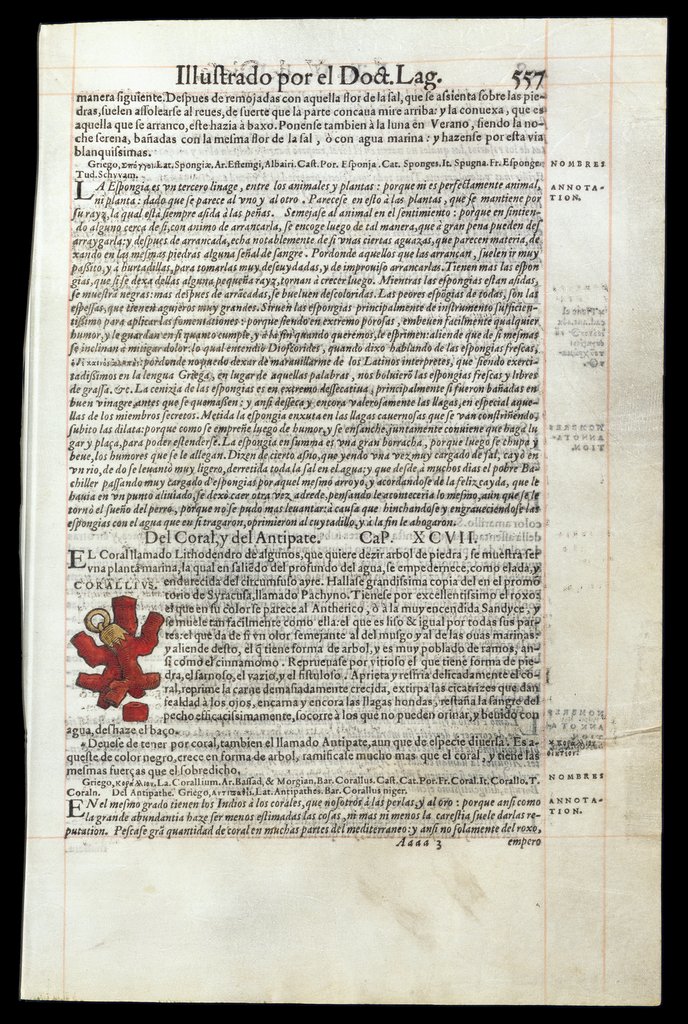 Illustrado por el Doct. Lag. 557
manera siguiente. Despues de remojadas con aquella flor de la sal, que se assienta sobre las pie-
dras, suelen assolearse al reues, de suerte que la parte concaua mire arriba: y la conuexa, que es
aquella que se arranco, este hazia à baxo. Ponense tambien à la luna en Verano, siendo la no-
che serena, bañadas con la mesma flor de la sal, ò con agua marina: y hazense por esta via
blanquissimas.
Griego, Σπόγγοι. Lat. Spongiæ. Ar. Esfemgi, Albairi. Cast. Por. Esponja. Cat. Sponges. It. Spugna. Fr. Esponge. NOMBRES
Tud. Schvvam.
LA Espongia es vn tercero linage, entre los animales y plantas: porque ni es perfectamente animal, ANNOTA-
ni planta: dado que se parece al vno y al otro. Parecese en esto à las plantas, que se mantiene por TION.
su rayz, la qual està siempre asida à las peñas. Semejase al animal en el sentimiento: porque en sintien-
do alguno cerca de si, con animo de arrancarla, se encoge luego de tal manera, que à gran pena pueden des
arraygarla: y despues de arrancada, echa notablemente de si vnas ciertas aguazas, que parecen materia, de
xando en las mesmas piedras alguna señal de sangre. Por donde aquellos que las arrancan, suelen ir muy
passito, y a hurtadillas, para tomarlas muy descuydadas, y de improuiso arrancarlas. Tienen mas las espon
gias, que si se dexa dellas alguna pequeña rayz, tornan à crecer luego. Mientras las espongias estan asidas,
se muestrã negras: mas despues de arrãcadas, se bueluen descoloridas. Las peores espõgias de todas, son las
espessas, que tienen agujeros muy grandes. Siruen las espongias principalmente de instrumento sufficien-
tissimo para aplicar las fomentationes: porque siendo en extremo porosas, embeuen facilmente qualquier
humor, y le guardan en si quanto cumple, y à la fin quando queremos, le esprimen: aliende que de si mesmas
se inclinan à mitigar dolor: lo qual entendio Dioscorides, quando dixo hablando de las espongias frescas,
por donde no puedo dexar de marauillarme de los Latinos interpretes, que siendo exerci-
tadissimos en la lengua Griega, en lugar de aquellas palabras, nos boluierõ las espongias frescas y libres
de grassa. &c. La ceniza de las espongias es en extremo dessecatiua, principalmente si fueron bañadas en
buen vinagre, antes que se quemassen: y ansi desseca y encora valerosamente las llagas, en especial aque-
llas de los miembros secretos. Metida la espongia enxuta en las llagas cauernosas que se van constriñendo,
subito las dilata: porque como se empreñe luego de humor, y se ensanche, juntamente conuiene que haga lu
gar y plaça, para poder estenderse. La espongia en summa es vna gran borracha, porque luego se chupa y
beue, los humores que se le allegan. Dizen de cierto asno, que yendo vna vez muy cargado de sal, cayò en
vn rio, de do se leuantò muy ligero, derretida toda la sal en el agua: y que desde à muchos dias el pobre Ba-
chiller passando muy cargado d'espongias por aquel mesmo arroyo, y acordandose de la feliz cayda, que le
hauia en vn punto aliuiado, se dexò caer otra vez adrede, pensando le aconteceria lo mesmo, aun que se le
tornò el sueño del perro, porque no se pudo mas leuantar: à causa que hinchandose y engraueciendose las
espongias con el agua que en si tragaron, oprimieron al cuytadillo, y à la fin le ahogaron.
Del Coral, y del Antipate. CaP. XCVII.
EL Coral llamado Lithodendro de algunos, que quiere dezir arbol de piedra, se muestra ser
vna planta marina, la qual en saliẽdo del profundo del agua, se empedernece, como elada, y
CORALLIVS. endurecida del circunfuso ayre. Hallase grandissima copia del en el promõ
torio de Syracusa, llamado Pachyno. Tienese por excellentissimo el roxo:
el que en su color se parece al Antherico, ò à la muy encendida Sandyce, y
se muele tan facilmente como ella: el que es liso & igual por todas sus par
tes: el que da de si vn olor semejante al del musgo y al de las ouas marinas:
y aliende desto, el q̃ tiene forma de arbol, y es muy poblado de ramos, an-
si como el cinnamomo. Reprueuase por vitioso el que tiene forma de pie-
dra, el sarnoso, el vazio, y el fistuloso. Aprieta y resfria delicadamente el co-
ral, reprime la carne demasiadamente crecida, extirpa las cicatrizes que dan
fealdad à los ojos, encarna y encora las llagas hondas, restaña la sangre del
pecho efficacissimamente, socorre à los que no pueden orinar, y beuido con
agua, deshaze el baço.
Deuese de tener por coral, tambien el llamado Antipate, aun que de especie diuersa. Es a-
queste de color negro, crece en forma de arbol, ramificale mucho mas que el coral, y tiene las
mesmas fuerças que el sobredicho.
Griego, Κοράλλιον. La. Corallium. Ar. Bassad, & Morgian. Bar. Corallus. Cast. Cat. Por. Fr. Coral. It. Corallo. T. NOMBRES
Coraln. Del Antipathe. Griego, Αντιπαθὲς. Lat. Antipathes. Bar. Corallus niger.
EN el mesmo grado tienen los Indios à los corales, que nosotros à las perlas, y al oro: porque ansi como ANNOTA-
la grande abundantia haze ser menos estimadas las cosas, ni mas ni menos la carestia suele darlas re- TION.
putation. Pescase grã quantidad de coral en muchas partes del mediterraneo: y ansi no solamente del roxo,
Aaaa 3 empero